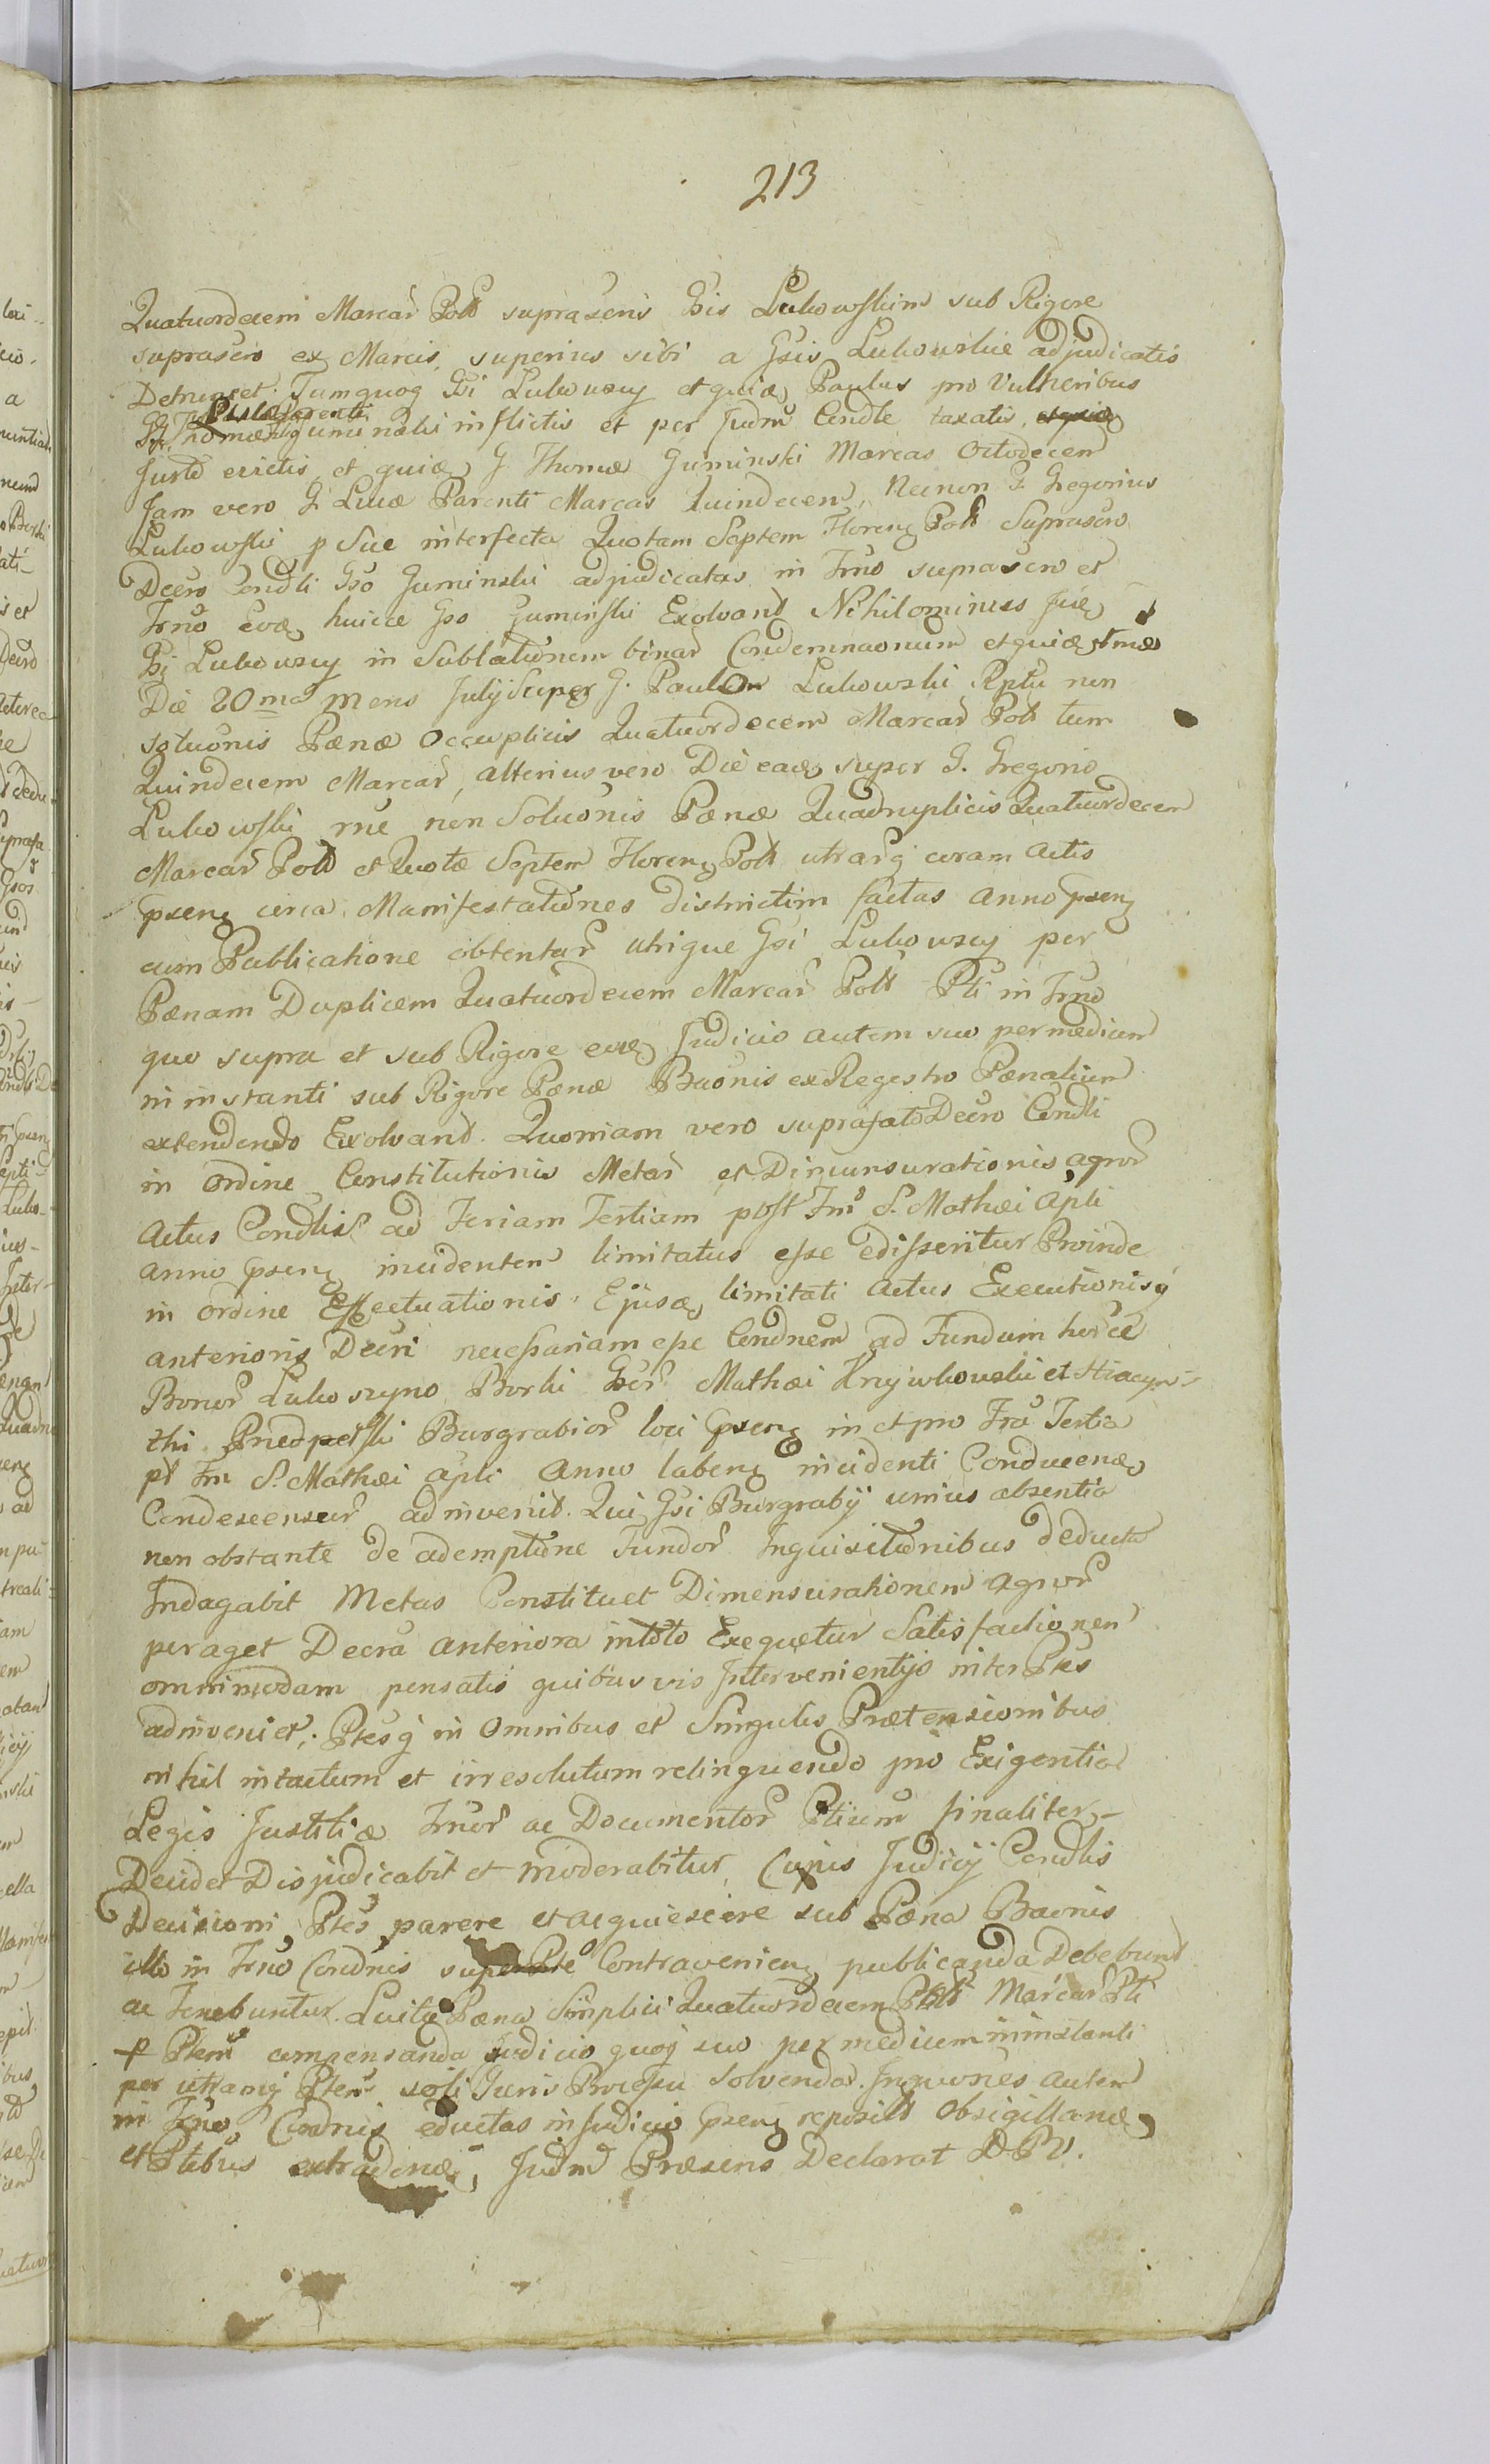 213
Quatuordecem Marcar Poll suprascris Gsis Lubowskim sub Rigore
suprascro ex Marcis, superius sibi a Gsis Lubowskie adjudicatis
Detruncet. Tum quoq Gsi Lubowscy et quidæ Paulus pro Vulneribus
G. Thomæ Guminski inflictis et per Judm Condle taxatis,
Jurto evictis et quidæ G Thomæ Guminski Marcas Octodecem
Jam vero G Lucæ Parenti Marcas Quindecem, Necnon G Gregorius
Lubowski p Sue interfecta Quotam Septem Floreng Poll Suprascro
Decro Condli Gso Guminski adjudicatas in Trno suprascro et
Trno evæ huicce Gso Guminski Exolvant Nihilominus Jiæ
Gsi Lubowscy in Sublationem binar Condemnaonum et quidæ 1mæ
Die 20ma Mens Julij Super G. Paulum Lubowski Rptu non
sotuonis Pænæ Occuplicis Quatuordecem Marcar Poll tum
Quindecem Marcar, alterius vero Die eadæ super G. Gregorio
Lubowski rne non Solvonis Pænæ Quadruplicis Quatuordecem
Marcar Poll et Quotæ Septem Floreng Poll utrarq coram Actis
pseng circa Manifestationes districtim factas anno pseng
cum Publicatione obtentar utrique Gsi Lubowscy per
Pænam Duplicem Quatuordecem Marcar Poll Pti in Trno
quo supra et sub Rigore evæ Judicio autem suo permedium
in instanti sub Rigore Pænæ Baonis ex Regestro Pænalium
extendendo Exolvant. Quoniam vero suprafato Decro Condli
in Ordine Constitutionis Metar et Dimensurationis agror
Actus Condlis ad Feriam Tertiam post Fm S. Mathæi Apli
anno pseng incidentem limitatus esse edisseritur Proinde
in ordine Effectuationis Ejusdæ limitati Actus Executionisq
anterioris Decri necessariam esse Condnem ad Fundum horce
Bonor Luboszyno Borki Gsor Mathæi Krzywkowski et Hiacyn=
thi Przedpelski Burgrabior loci pseng in et pro Fra Tertia
pt Fm S. Mathæi Apli Anno labeng incidenti Conducenæ
Condescensur adinvenit. Qui Gsi Burgrabij unius absentia
non obstante de ademptione Fundor Inquisitionibus deductis
Indagabit Metas Constituet Dimensurationem Agror
peraget Decra anteriora intoto Exequetur Satisfactionem
omnimodam pensatis quibusvis Intervenientijs inter Ptes
adinveniet, Ptesq in Omnibus et Singulis Prætensionibus
nihil intactum et irresolutum relinquendo pro Exigentia
Legis Justitiæ Trnor ac Documentor Ptium finaliter
Decidet Disjudicabit et moderabitur, Cujus Judicij Condlis
Decisioni Ptes parere et acquiescere sub Pæna Baonis
illo in Trno Condnis super Pte Contravenieng publicanda Debebunt
ac Tenebuntur. Luita Pæna Simplici Quatuordecem Poll Marcar Pti
p Ptem compensanda Judicio quoq suo per medium in instanti
per utramq Ptem soli Juris Processu Solvenda. Inqnones autem
in Trno Condnis eductas in Judicio pseng reposit Obsigillanæ
et Ptibus extradenæ, Judm Præsens Declarat D. P. V.